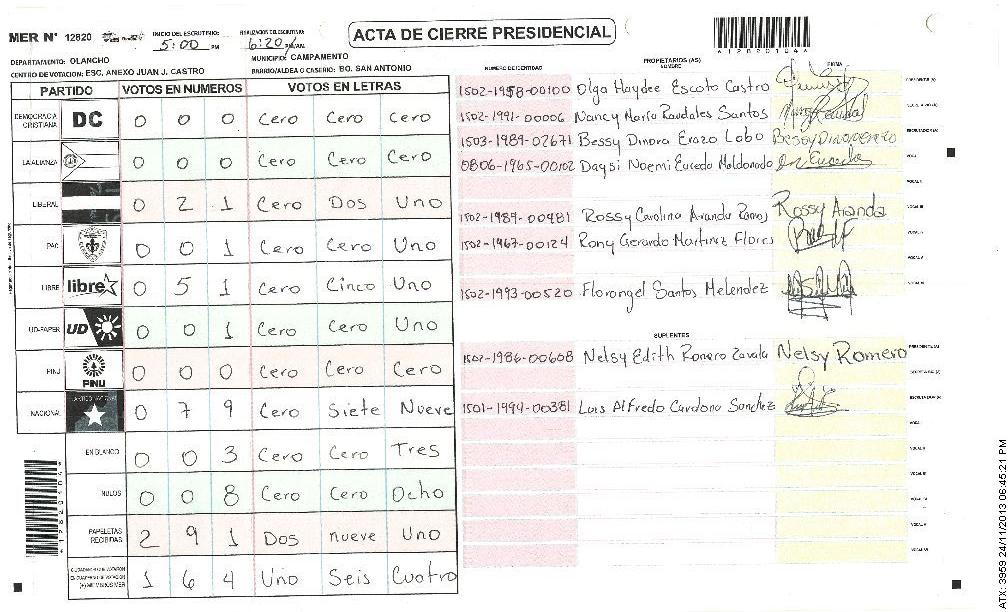 MER N° 12820
INICIO DEL ESCRUTINIO: 5:00 PM
FINALIZACION DEL ESCRUTINIO: 6:20 PM/AM
ACTA DE CIERRE PRESIDENCIAL
DEPARTAMENTO: OLANCHO
MUNICIPIO: CAMPAMENTO
CENTRO DE VOTACION: ESC. ANEXO JUAN J. CASTRO
BARRIO/ALDEA O CASERIO: BO. SAN ANTONIO
PARTIDO VOTOS EN NUMEROS VOTOS EN LETRAS
DEMOCRACIA CRISTIANA DC 0 0 0 Cero Cero Cero
LA ALIANZA 0 0 0 Cero Cero Cero
LIBERAL 0 2 1 Cero Dos Uno
PAC 0 0 1 Cero Cero Uno
LIBRE libre 0 5 1 Cero Cinco Uno
UD-FAPER UD 0 0 1 Cero Cero Uno
PINU PINU 0 0 0 Cero Cero Cero
NACIONAL 0 7 9 Cero Siete Nueve
EN BLANCO 0 0 3 Cero Cero Tres
NULOS 0 0 8 Cero Cero Ocho
PAPELETAS RECIBIDAS 2 9 1 Dos nueve Uno
CIUDADANOS QUE VOTARON EN CUADERNO DE VOTACION (+) MIEMBROS MER 1 6 4 Uno Seis Cuatro
NUMERO DE IDENTIDAD
PROPIETARIOS (AS)
NOMBRE
FIRMA
1502-1958-00100 Olga Haydee Escoto Castro PRESIDENTE (A)
1502-1991-00006 Nancy Maria Raudales Santos SECRETARIO (A)
1503-1989-02671 Bessy Dinora Erazo Lobo ESCRUTADOR (A)
0806-1965-00102 Daysi Noemi Euceda Maldonado VOCAL I
VOCAL II
1502-1989-00481 Rossy Carolina Aranda Ramos Rossy Aranda VOCAL III
1502-1967-00124 Rony Gerardo Martinez Flores VOCAL IV
VOCAL V
1502-1993-00520 Florangel Santos Melendez VOCAL VI
SUPLENTES
1502-1986-00608 Nelsy Edith Romero Zavala Nelsy Romero PRESIDENTE (A)
SECRETARIO (A)
1501-1994-00381 Luis Alfredo Cardona Sanchez ESCRUTADOR (A)
VOCAL I
VOCAL II
VOCAL III
VOCAL IV
VOCAL V
VOCAL VI
ATX: 3959 24/11/2013 06:45:21 PM